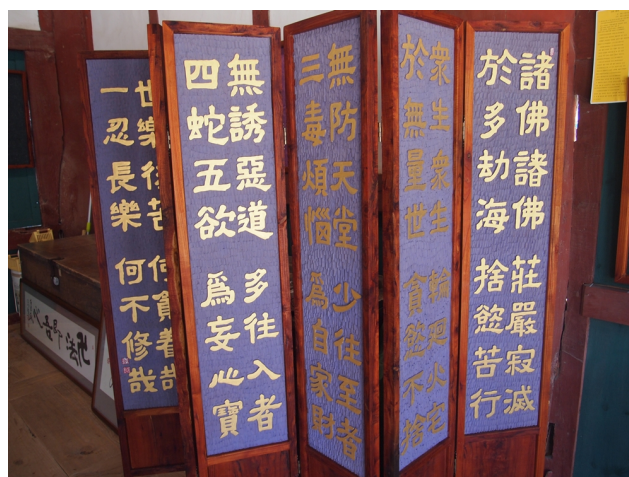 諸佛諸佛 莊嚴寂滅
於多劫海 捨慾苦行
衆生衆生 輪廻火宅
於無量世 貪慾不捨
無防天堂 少往至者
三毒煩惱 爲自家財
無誘惡道 多往入者
四蛇五欲 爲妄心寶
世樂後苦 何貪着哉
一忍長樂 何不修哉